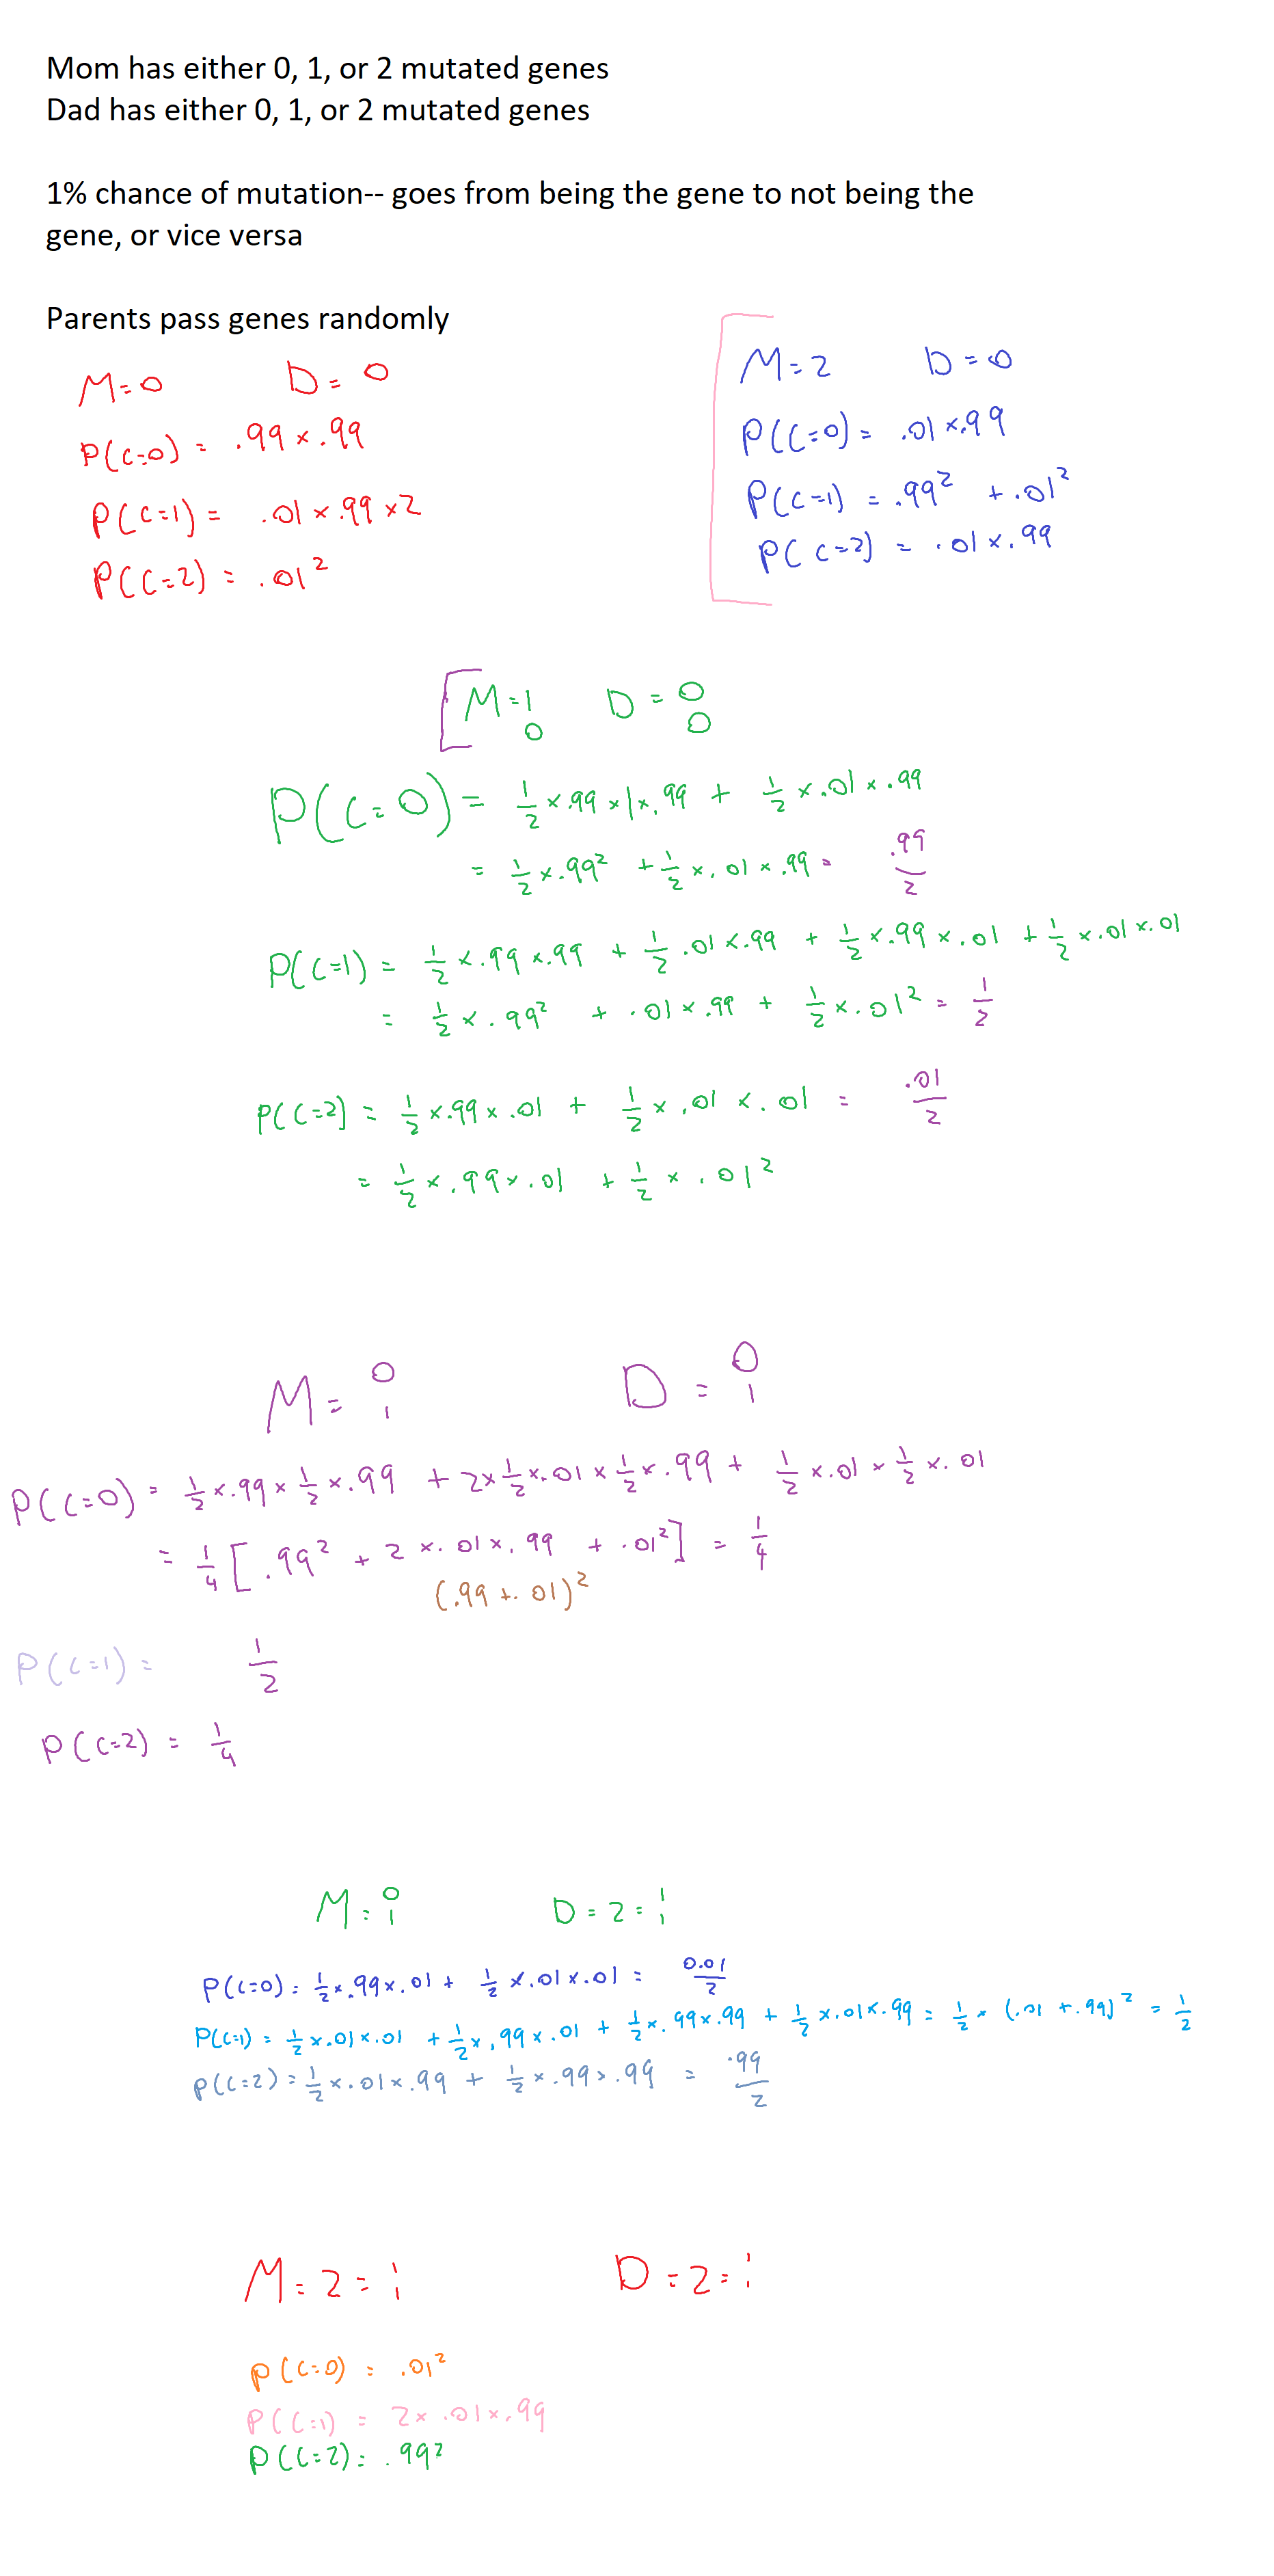 Mom has either 0, 1, or 2 mutated genes
Dad has either 0, 1, or 2 mutated genes
1% chance of mutation-- goes from being the gene to not being the
gene, or vice versa
Parents pass genes randomly
M=0 D=0
P(C=0) = .99 x .99
P(C=1) = .01 x .99 x 2
P(C=2) = .01²
M=2 D=0
P(C=0) = .01 x .99
P(C=1) = .99² + .01²
P(C=2) = .01 x .99
M=1 D=0
0 0
P(C=0) = 1/2 x .99 x 1 x .99 + 1/2 x .01 x .99
= 1/2 x .99² + 1/2 x .01 x .99 = .99/2
P(C=1) = 1/2 x .99 x .99 + 1/2 .01 x .99 + 1/2 x .99 x .01 + 1/2 x .01 x .01
= 1/2 x .99² + .01 x .99 + 1/2 x .01² = 1/2
P(C=2) = 1/2 x .99 x .01 + 1/2 x .01 x .01 = .01/2
= 1/2 x .99 x .01 + 1/2 x .01²
M= 0 D= 0
1 1
P(C=0) = 1/2 x .99 x 1/2 x .99 + 2 x 1/2 x .01 x 1/2 x .99 + 1/2 x .01 x 1/2 x .01
= 1/4 [.99² + 2 x .01 x .99 + .01²] = 1/4
(.99 + .01)²
P(C=1) = 1/2
P(C=2) = 1/4
M= 0 D=2= 1
1 1
P(C=0) = 1/2 x .99 x .01 + 1/2 x .01 x .01 = 0.01/2
P(C=1) = 1/2 x .01 x .01 + 1/2 x .99 x .01 + 1/2 x .99 x .99 + 1/2 x .01 x .99 = 1/2 x (.01 + .99)² = 1/2
P(C=2) = 1/2 x .01 x .99 + 1/2 x .99 x .99 = .99/2
M=2= 1 D=2= 1
1 1
P(C=0) = .01²
P(C=1) = 2 x .01 x .99
P(C=2) = .99²